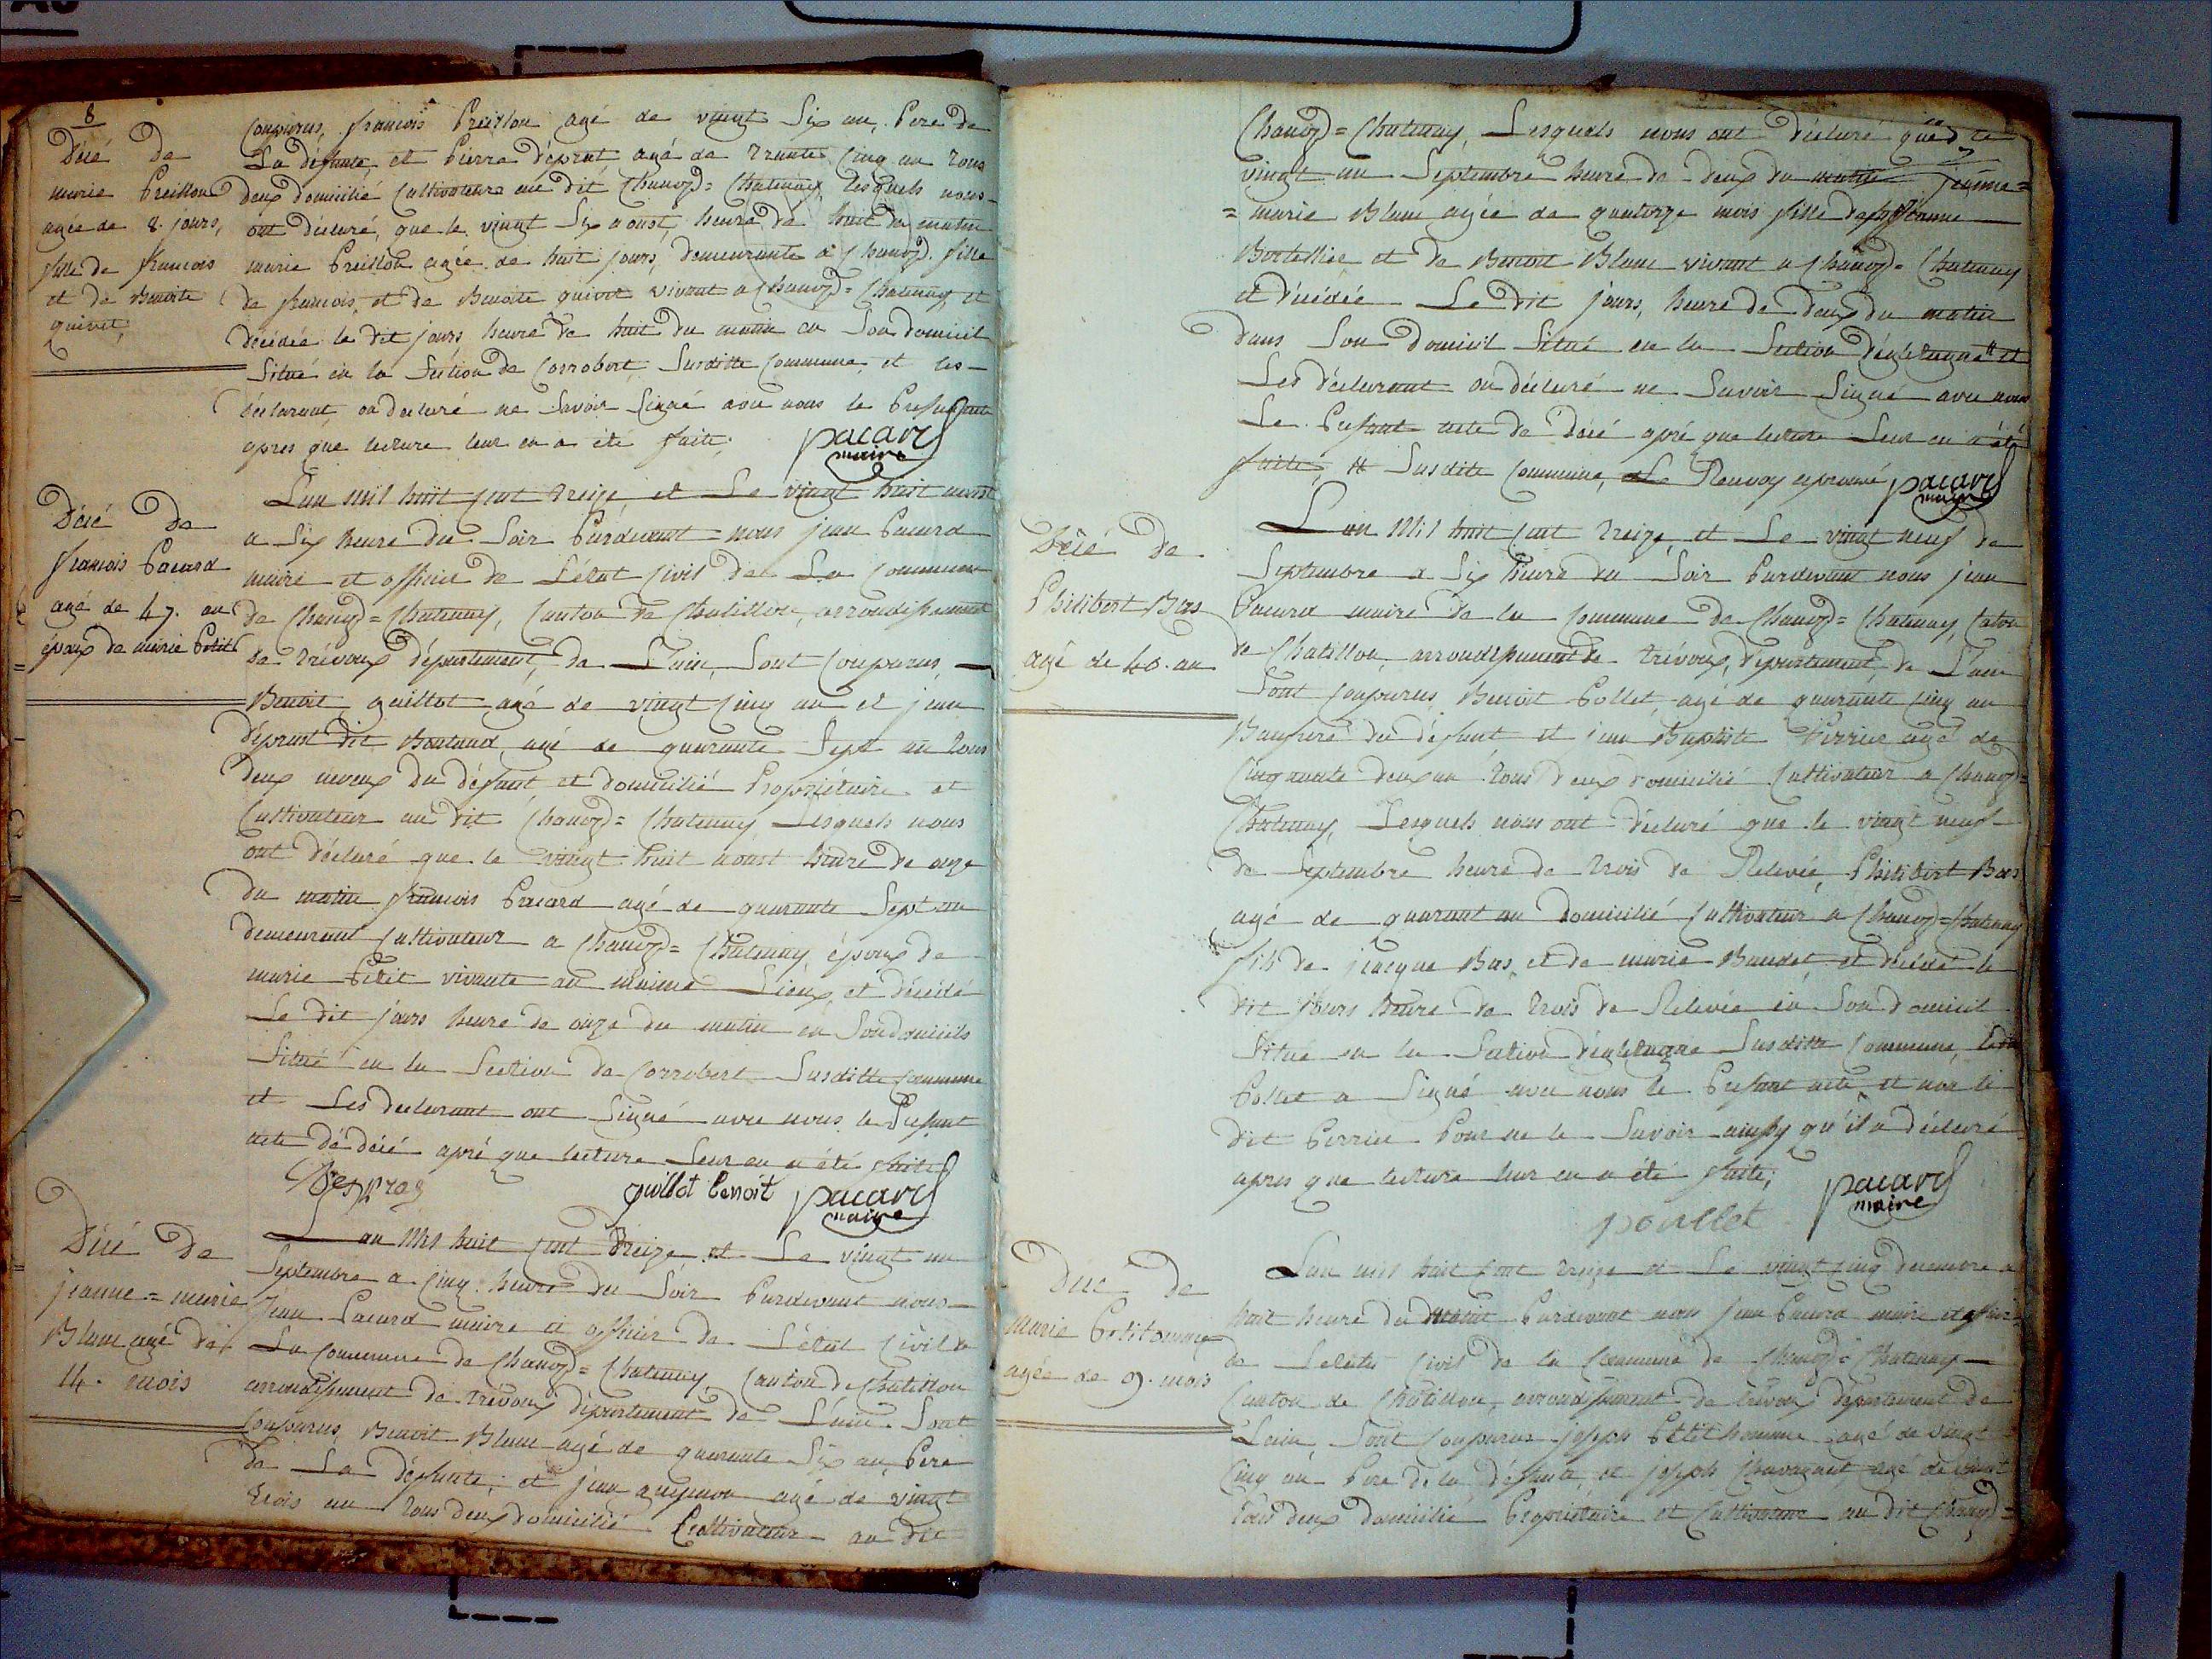 8
Décé de
marie Preillon
agée de 8. jours,
fille de francois
et de Benoite
quivet,
Comparus, francois Preillon agé de vingt Six an, Pere de
La défunte, et Pierre déprat agé de trante Cinq an tous
deux domicilié Cultivateurs au dit Chanoz=Chatenay, lesquels nous
ont déclaré, que le vingt Six aoust, heure de huit du matin
marie Preillon agée de huit jours, demeurante a Chanoz. fille
de francois, et de Benoite quivet vivant a Chanoz=Chatenay et
décédée le dit jours heure de huit du matin en Son domicil
Situé en la Section de Corrobert Susditte Commune, et les
déclarant on declaré ne Savoir Signé avec nous le Presant acte
apres que lecture leur en a été faite,
pacard
maire
Décé de
francois Pacard
agé de 47. an
époux de marie Petit
L'an mil huit Cent treize et Le vingt huit aoust
a Six heure du Soir Pardevant nous jean Pacard
maire et officier de L'état Civil de La Commune
de Chanoz=Chatenay, Canton de Chatillon, arrondissement
de trévoux département, de L'ain, Sont Comparus,
Benoit guillot agé de vingt Cinq an et jean
déprast dit agé de quarante Sept an tous
deux neveux du défunt et domicilié Propriétaire et
Cultivateur au dit Chanoz=Chatenay Lesquels nous
ont déclaré que le vingt huit aoust heure de onze
du matin francois Pacard agé de quarante Sept an
demeurant Cultivateur a Chanoz=Chatenay époux de
marie Petit vivante au maime Lieux, et décédé
Le dit jours heure de onze du matin en Son domicils
Situé en la Section de Corrobert Susditte Commune
et Les declarant ont Signé avec nous le Presant
acte de décé apré que lecture Leur en a été faite
Despras
guillot benoit
pacard
maire
Décé de
jeanne=marie
Blanc agé de
14. mois
L'an Mil huit Cent treize et Le vingt un
Septembre a Cinq heure du Soir Pardevant nous
jean Pacard maire et officier de L'état Civil de
La Commune de Chanoz=Chatenay Canton de Chatillon
arrondissement de trévoux département de L'ain Sont
Comparus, Benoit Blanc agé de quarante Six an, Pere
de La défunte, et jean agé de vingt
trois an tous deux domicilié Cultivateur au dit
Chanoz=Chatenay, Lesquels nous ont déclaré que le
vingt un Septembre heure de deux du matin jeanne=
=marie Blanc agée de quatorze mois fille de
et de Benoit Blanc vivant a Chanoz=Chatenay
et décédée Le dit jours, heure de deux du matin
dans Son domicil Situé en la Section # et
Les déclarant on déclaré ne Savoir Signé avec nous
Le Presant acte de décé apré que lecture Leur en a été
faite, # Susdite Commune, Le Renvoy aprouvé
pacard
maire
Décé de
Philibert Bas
agé de 40. an
L'an Mil huit Cent treize, et Le vingt neuf de
Septembre a Six heure du Soir Pardevant nous jean
Pacard maire de la Commune de Chanoz=Chatenay, Caton
de Chatillon arrondissement de trévoux, département, de L'ain
Sont Comparus Benoit Pollet, agé de quarante Cinq an
Baufrere du défunt et jean Baptiste Perrier agé de
Cinquante deux an tous deux domicilié Cultivateur a Chanoz=
Chatenay, Lesquels nous ont déclaré que le vingt neuf
de Septembre heure de trois de Relevée, Philibert Bas
agé de quarant an domicilié Cultivateur a Chanoz=Chatenay
fils de jacque Bas, et de marie Baudet, et décédé le
dit jours heure de trois de Relevée en Son domicil
Situé en la Section Susditte Commune, Ledit
Pollet a Signé avec nous le Presant acte et non le
dit Perrier Pour ne le Savoir ainssy qu'il a déclaré
apres que lecture leur en a été faite,
poullet
pacard
maire
Décé de
Marie Petitomme
agée de 9. mois
L'an mil huit Cent treize et Le vingt Cinq decembre a
huit heure du matin Pardevant nous jean Pacard maire et officier
de L'etat Civil de la Commune de Chanoz=Chatenay
Canton de Chatillon, arrondissement de trévoux département de
L'ain Sont Comparus joseph Petithomme agé de vingt
Cinq an Pere de la défunte, et joseph agé de vingt
tous deux domicilié Propriétaire et Cultivateur au dit Chanoz=